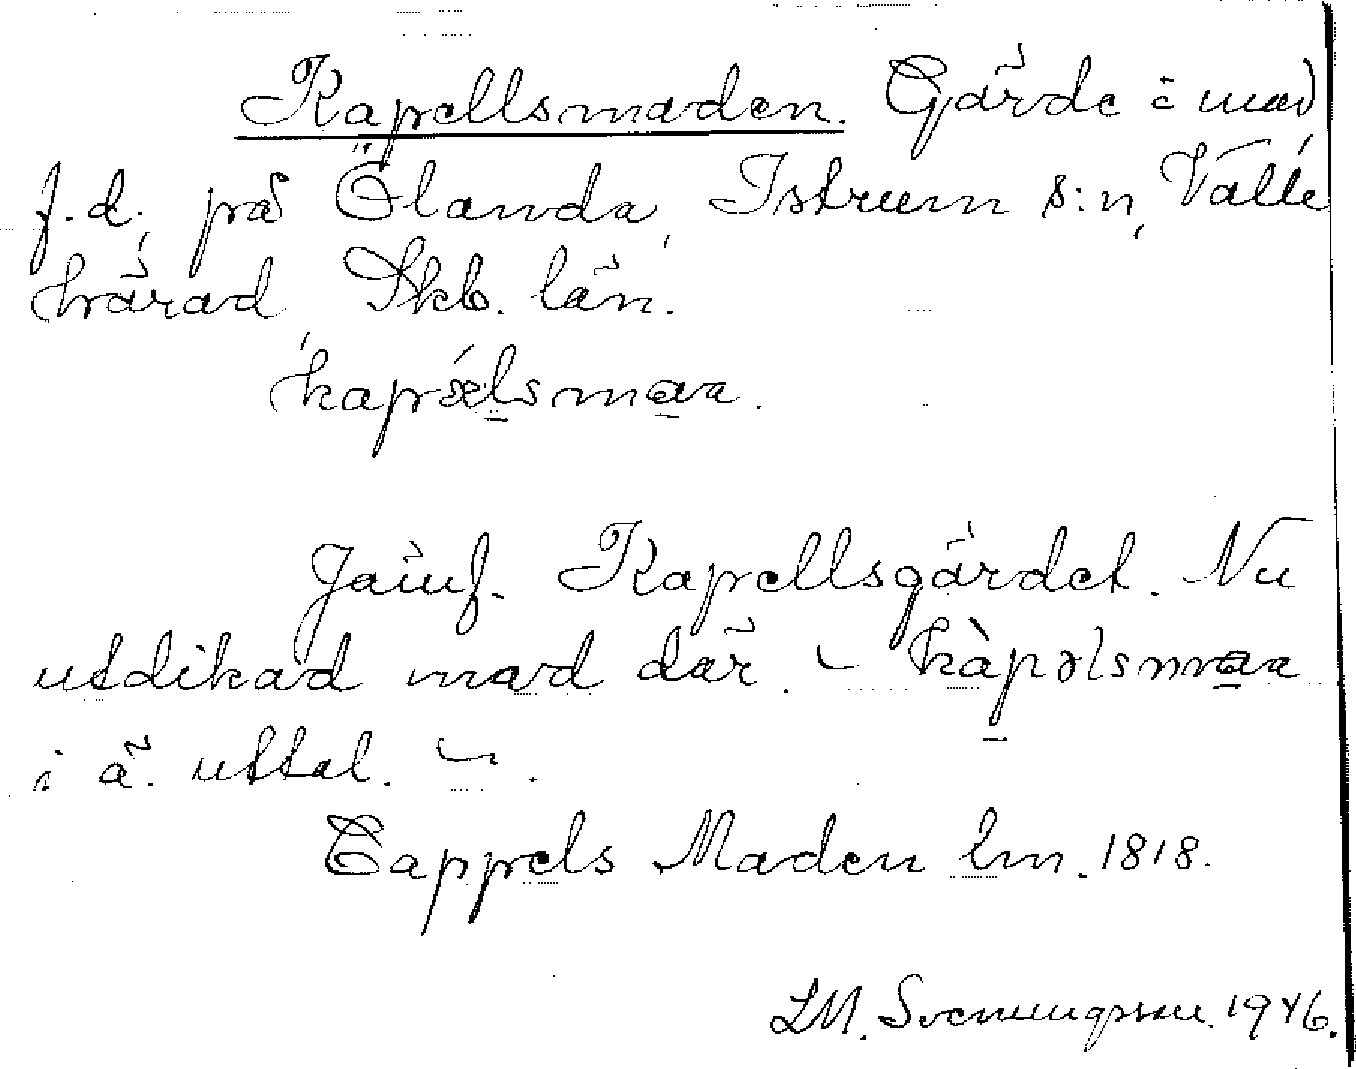 Kapellsmaden. Gärde o mad
f.d. på Ölanda, Istrum s:n, Valle
härad, Skb. län.
kapǽlsmaa.
Jämf. Kapellsgärdet. Nu
utdikad mad där. – kàpəlsmaa
i ä. uttal. –.
Cappels Maden lm. 1818.
LM. Svenungsson. 1946.